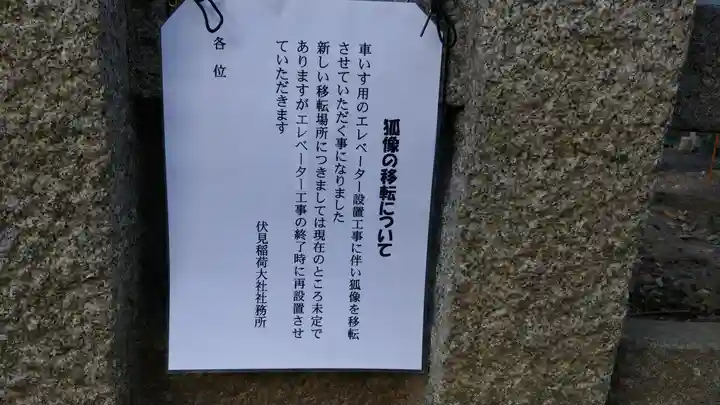 狐像の移転について
車いす用のエレベーター設置工事に伴い狐像を移転
させていただく事になりました
新しい移転場所につきましては現在のところ未定で
ありますがエレベーター工事の終了時に再設置させ
ていただきます
伏見稲荷大社社務所
各位